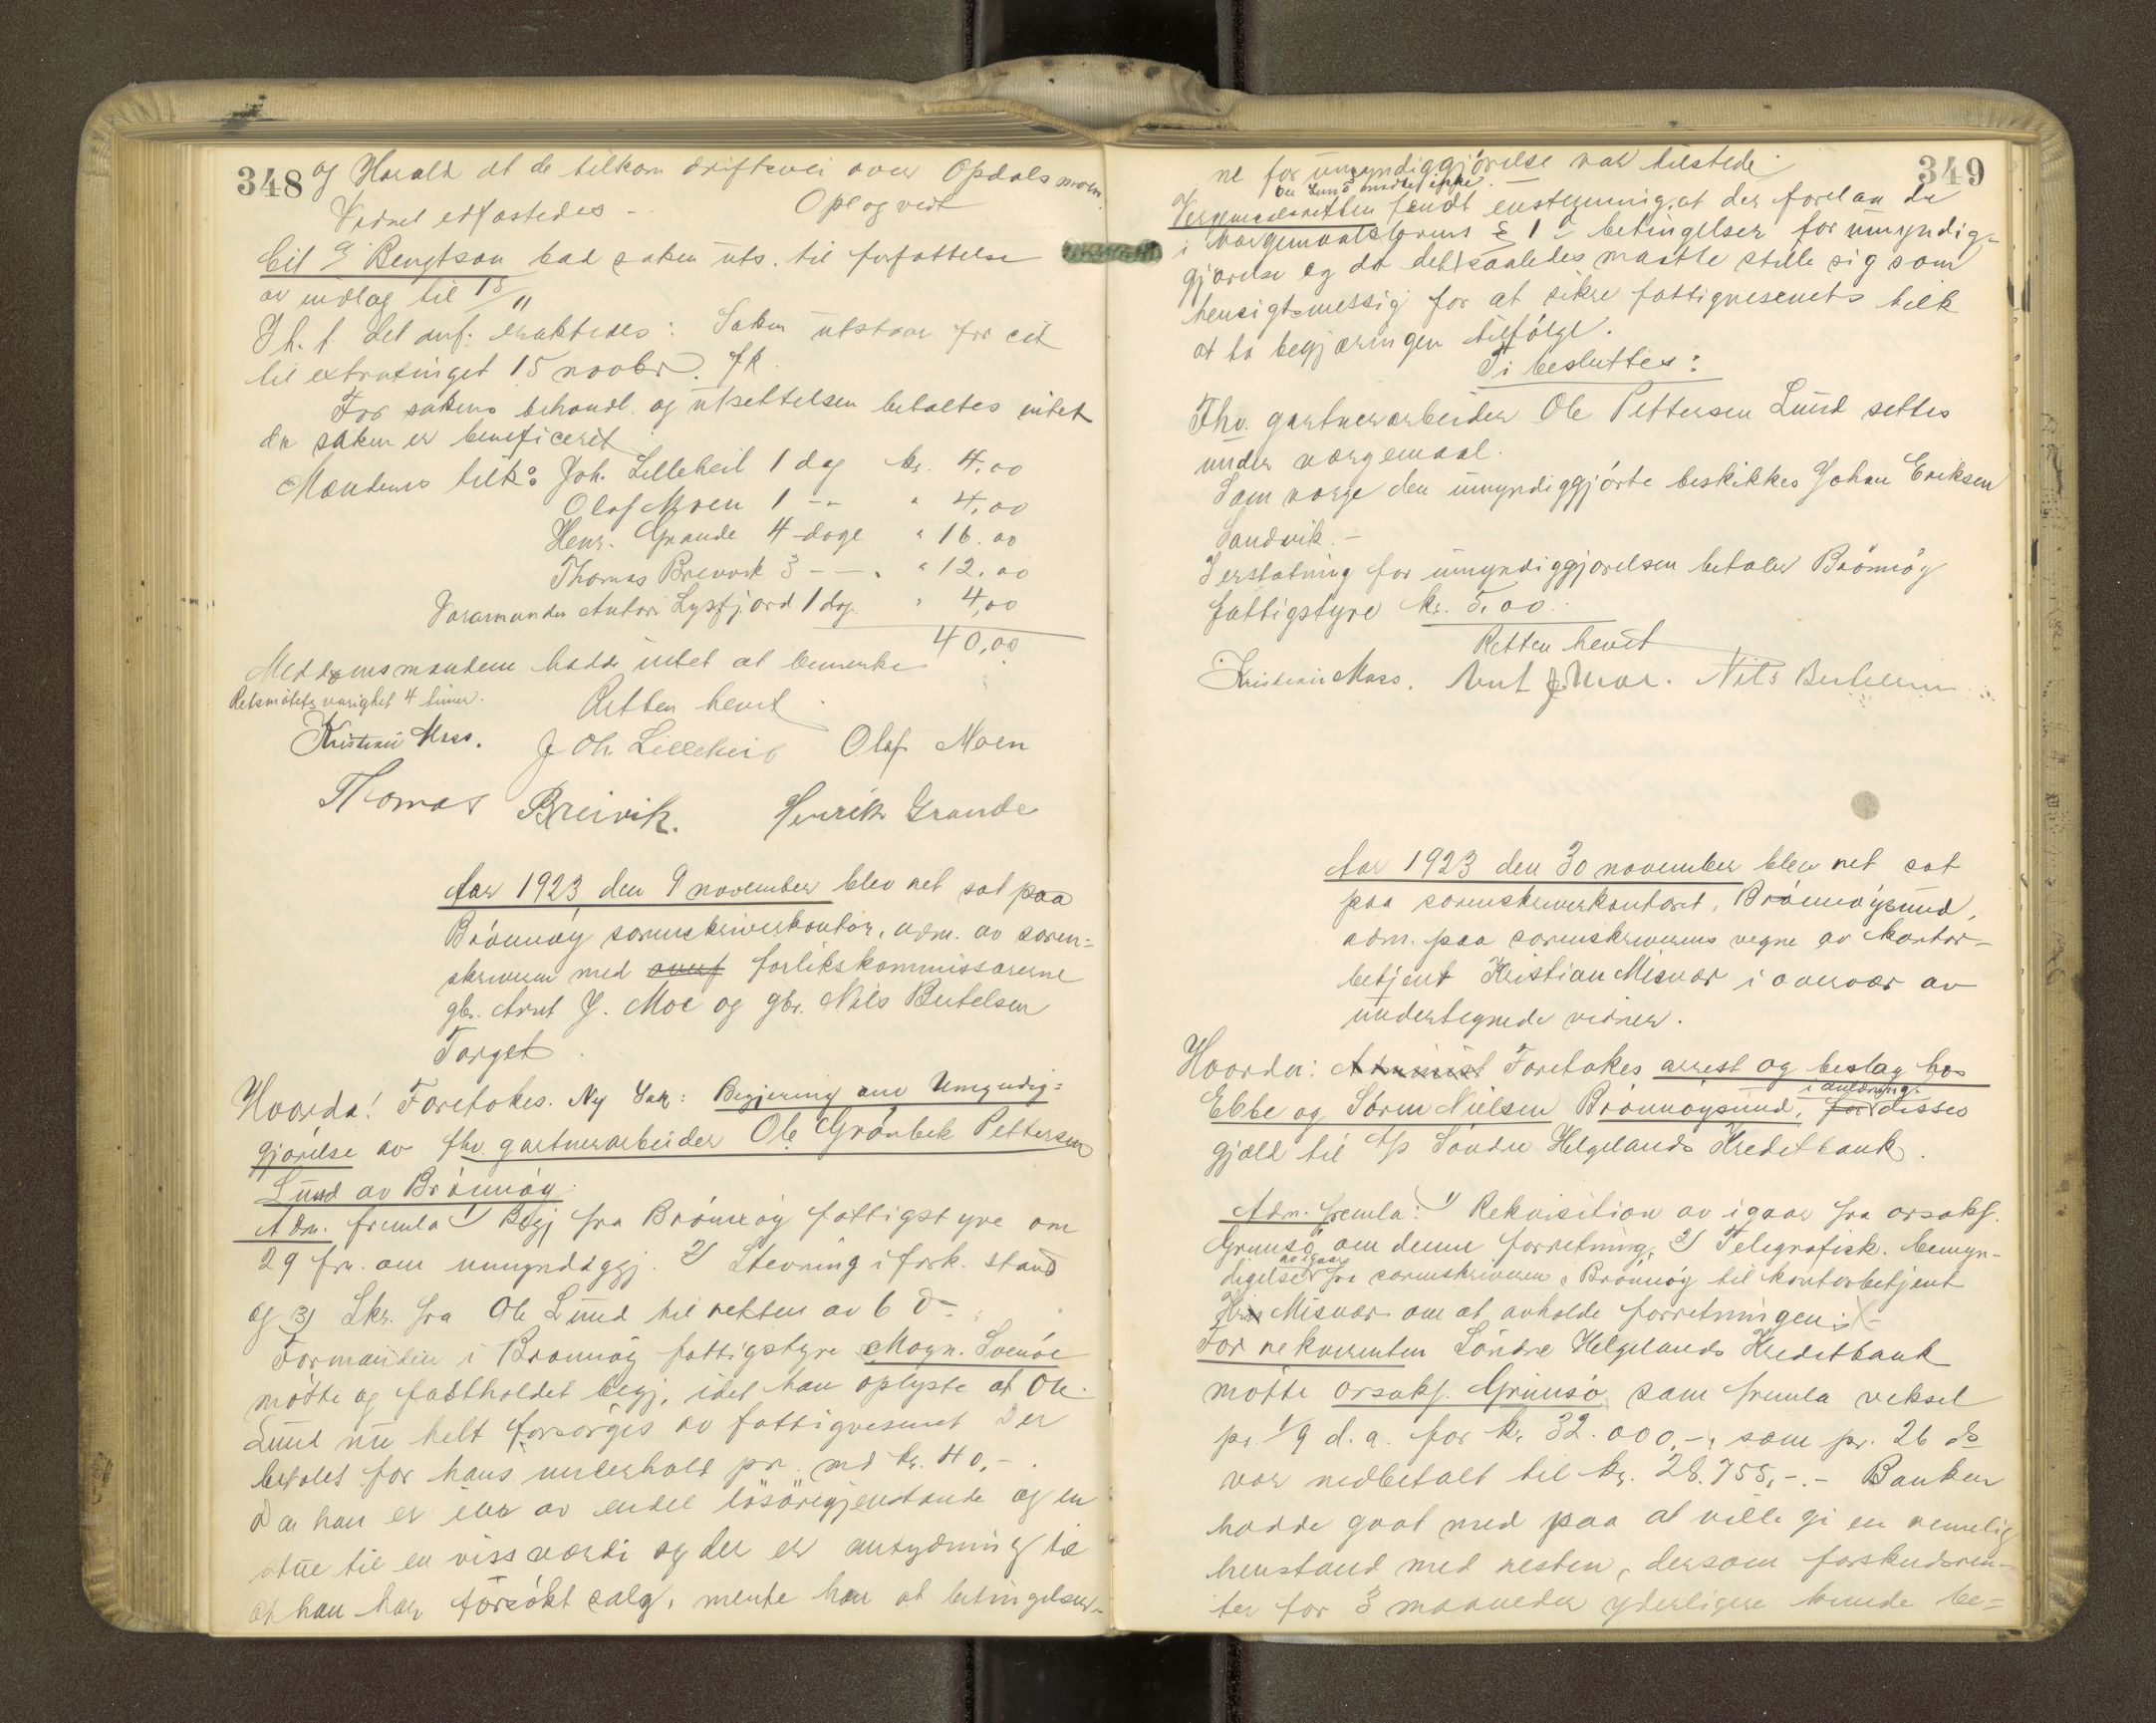 348
og Harald at de tilkom driftsvei over Opdalsmoen
Vidnet edfæstedes - Opl og vedt
Cit E. Bengtson bad saken uts. til forfattelse
av indlag til 15/11
I h. t. det anf. eraktedes: Saken utstaar for cit
til extratinget 15 novbr. fk.
For sakens behandl. og utsettelsen betaltes intet
da saken er beneficeret
Mændenes tilk: Joh. Lilleheil 1 dag kr. 4.00
Olaf Moen 1 -- " 4,00
Henr. Grande 4 dage " 16.00
Thomas Breivik 3 -- " 12.00
Varamanden Anton Lysfjord 1 dag " 4,00
40,00
Meddomsmændene hadde intet at bemerke
Retsmötets varighet 4 timer. Retten hevet
Kristian Moss. Joh. Lilleheil Olaf Moen
Thomas Breivik. Henrik Grande
Aar 1923 den 9 november blev ret sat paa
Brönnöy sorenskriverkontor, adm. av soren-
skriveren med overf forlikskommissærerne
gbr. Arnt J. Moe og gbr. Nils Bertelsen
Torget.
Hvorda! Foretokes. Ny Sak: Begjering om Umyndig-
gjörelse av fhv. gartnerarbeider Ole Grönbek Pettersen
Lund av Brönnöy.
Adm. fremla 1) Begj fra Brönnöy fattigstyre om
29 f.m. om umyndiggj. 2) Stevning i fork. stand
og 3) Skr. fra Ole Lund til retten av 6 ds.
Formanden i Brönnöy fattigstyre Magn. Svenöe
mötte og fastholdet begj. idet han oplyste at Ole
Lund nu helt forsörges av fattigvesenet der
betalet for hans underhold pr. md kr. 40,-.
Da han er eier av endel lösöregjenstande og en
stue til en viss værdi og der er antydning til
at han har forsökt salg, mente han at betingelser-
349
ne for umyndiggjörelse var tilstede.
Ole Lund mötte ikke.
Vergemaalsretten fandt enstemmig, at der forelaa de
i værgemaalslovens § 1 c betingelser for umyndig-
gjörelse og da det saaledes maatte stille sig som
hensigtsmessig for at sikre fattigvesenets tilk
at ta begjæringen tilfölge.
Ti besluttes:
Fhv. gartnerarbeider Ole Pettersen Lund settes
under værgemaal.
Som værge den umyndiggjörte beskikkes Johan Eriksen
Sandvik. -
I erstatning for umyndiggjörelsen betaler Brönnöy
fattigstyre kr. 5.00.
Retten hevet
Kristian Moss. Arnt J. Moe. Nils Bertelsen
Aar 1923 den 30 november blev ret sat
paa sorenskriverkontoret, Brönnöysund,
adm. paa sorenskriverens vegne av kontor-
betjent Kristian Misvær i overvær av
undertegnede vidner.
Hvorda: Foretokes arrest og beslag hos
Ebbe og Sören Nielsen Brönnöysund, for i anledning disses
gjæld til A/S Söndre Helgelands Kreditbank.
Adm. fremla: 1) Rekvisition av igaar fra orsakf.
Grimsö om denne forretning, 2) Telegrafisk. bemyn-
digelse av igaar fra sorenskriveren i Brönnöy til kontorbetjent
Misvær om at avholde forretningen. -
For rekvirenten Söndre Helgelands Kreditbank
mötte orsakf. Grimsö som fremla veksel
pr. 1/9 d.a. for kr. 32.000,-, som pr. 26 ds
var nedbetalt til kr. 28.755,-. - Banken
hadde gaat med paa at ville gi en rimelig
henstand med resten, dersom forskudsren-
ter for 3 maaneder yderligere kunde be-